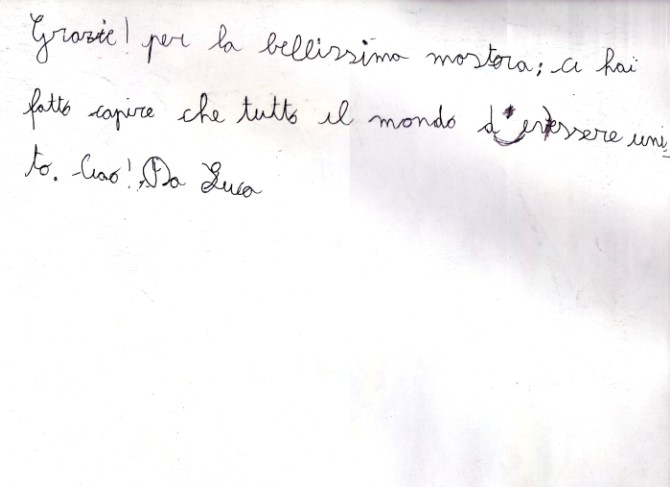 Grazie! per la bellissima mostora; ci hai
fatto capire che tutto il mondo d'eressere uni_
to. Ciao! Da Luca